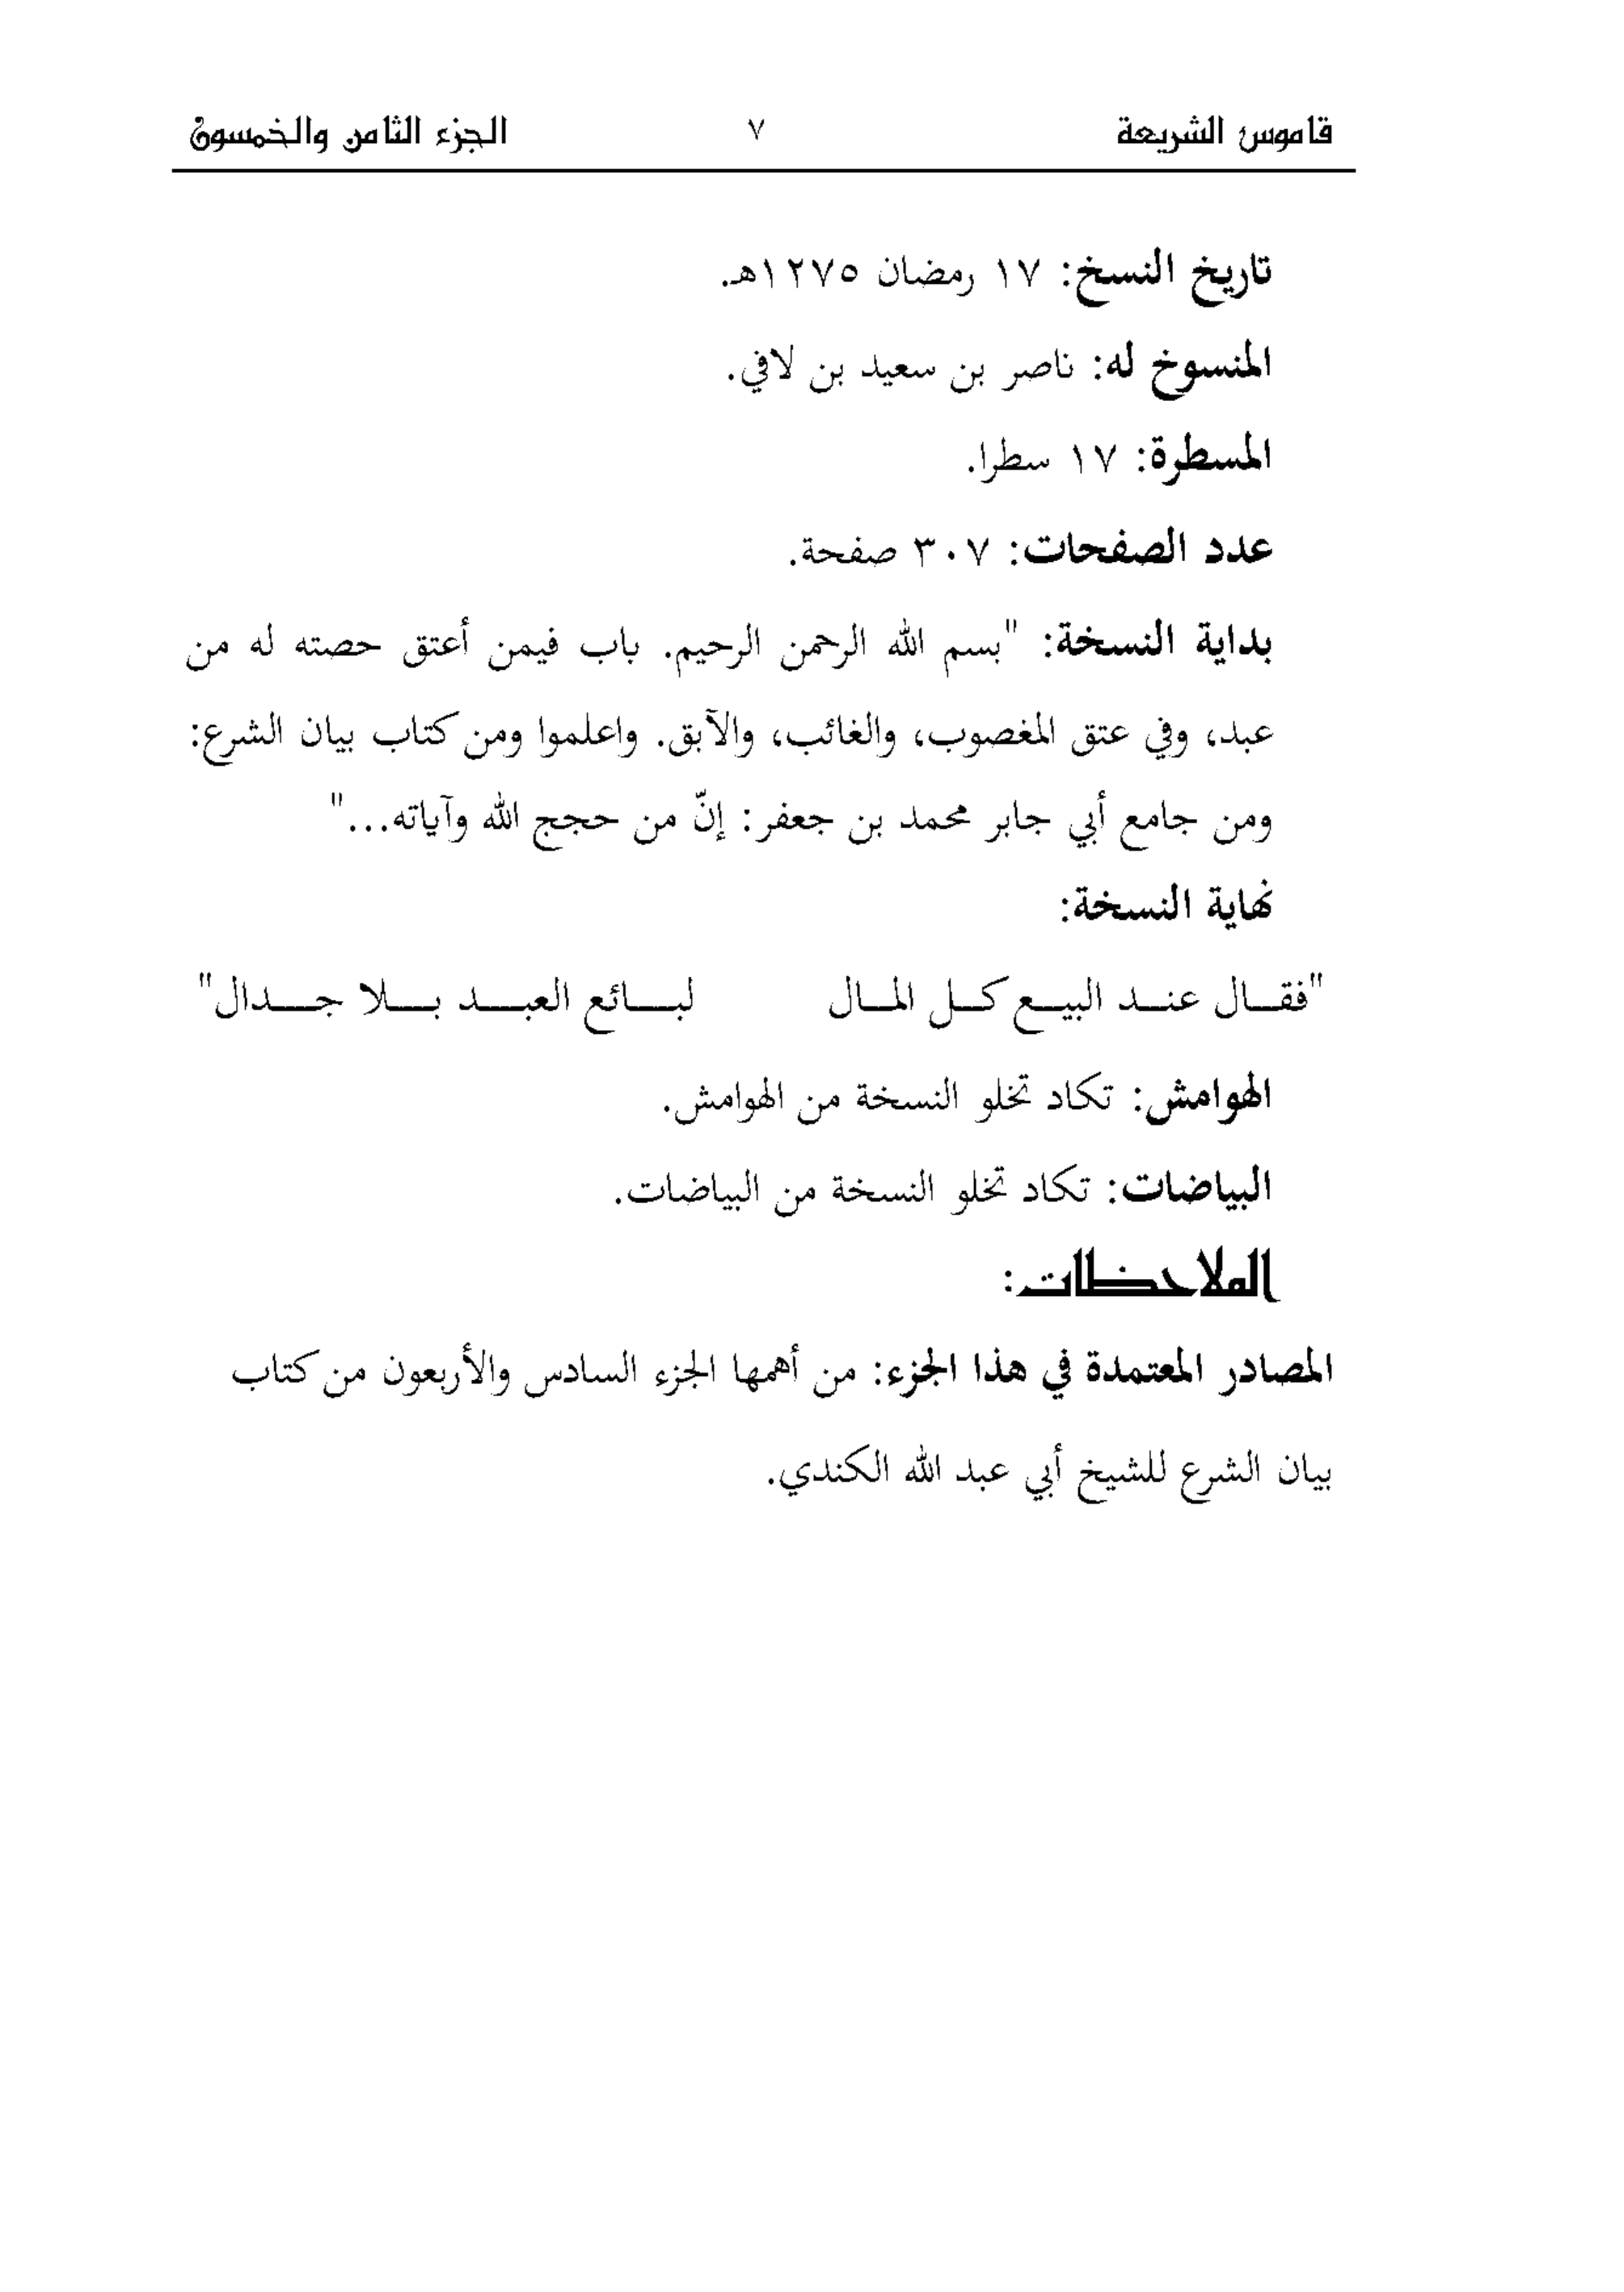 قاموس الشريعة ٧ الجزء الثامن والخمسون
تاريخ النسخ: ١٧ رمضان ١٢٧٥هـ.
المنسوخ له: ناصر بن سعيد بن لافي.
المسطرة: ١٧ سطرا.
عدد الصفحات: ٣٠٧ صفحة.
بداية النسخة: "بسم الله الرحمن الرحيم. باب فيمن أعتق حصته له من
عبد، وفي عتق المغصوب، والغائب، والآبق. واعلموا ومن كتاب بيان الشرع:
ومن جامع أبي جابر محمد بن جعفر: إنّ من حجج الله وآياته..."
نهاية النسخة:
"فقـــال عنـــد البيـــع كـــل المـــال لبـــــائع العبـــــد بـــــلا جـــــدال"
الهوامش: تكاد تخلو النسخة من الهوامش.
البياضات: تكاد تخلو النسخة من البياضات.
الملاحظات:
المصادر المعتمدة في هذا الجزء: من أهمها الجزء السادس والأربعون من كتاب
بيان الشرع للشيخ أبي عبد الله الكندي.